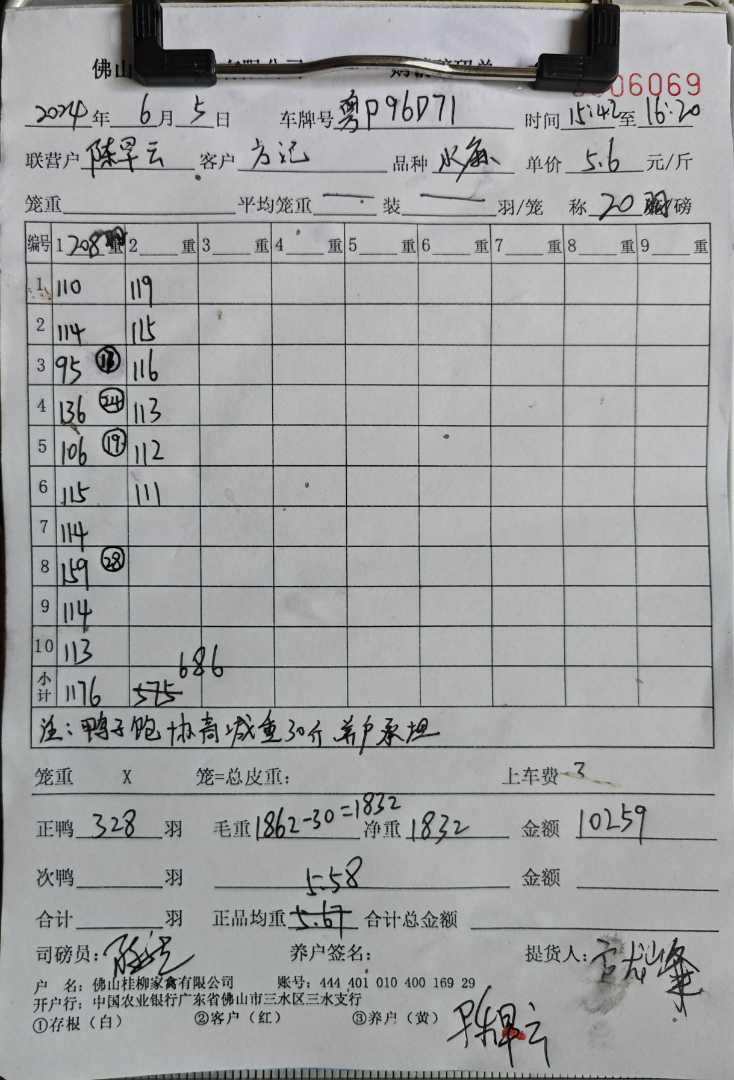 佛山
06069
2024年 6月5日 车牌号 粤P96D71 时间 15:42至 16:20
联营户 陈早云 客户 方记 品种 水麻 单价 5.6 元/斤
笼重 平均笼重 — 装 — 羽/笼 称 20 磅
编号 1 208 重 2 重 3 重 4 重 5 重 6 重 7 重 8 重 9 重
1 110 119
2 114 115
3 95 116
4 136 24 113
5 106 19 112
6 115 111
7 114
8 159 28
9 114
10 113
686
小计 1176 575
注:鸭子饱 协商减重30斤 养户承担
笼重 X 笼=总皮重: 上车费 3
正鸭 328 羽 毛重 1862-30=1832 净重 1832 金额 10259
次鸭 羽 金额
5.58
合计 羽 正品均重 5.67 合计总金额
司磅员: 养户签名: 提货人:
户 名: 佛山桂柳家禽有限公司 账号: 444 401 010 400 169 29
开户行: 中国农业银行广东省佛山市三水区三水支行
①存根(白) ②客户(红) ③养户(黄) 陈早云